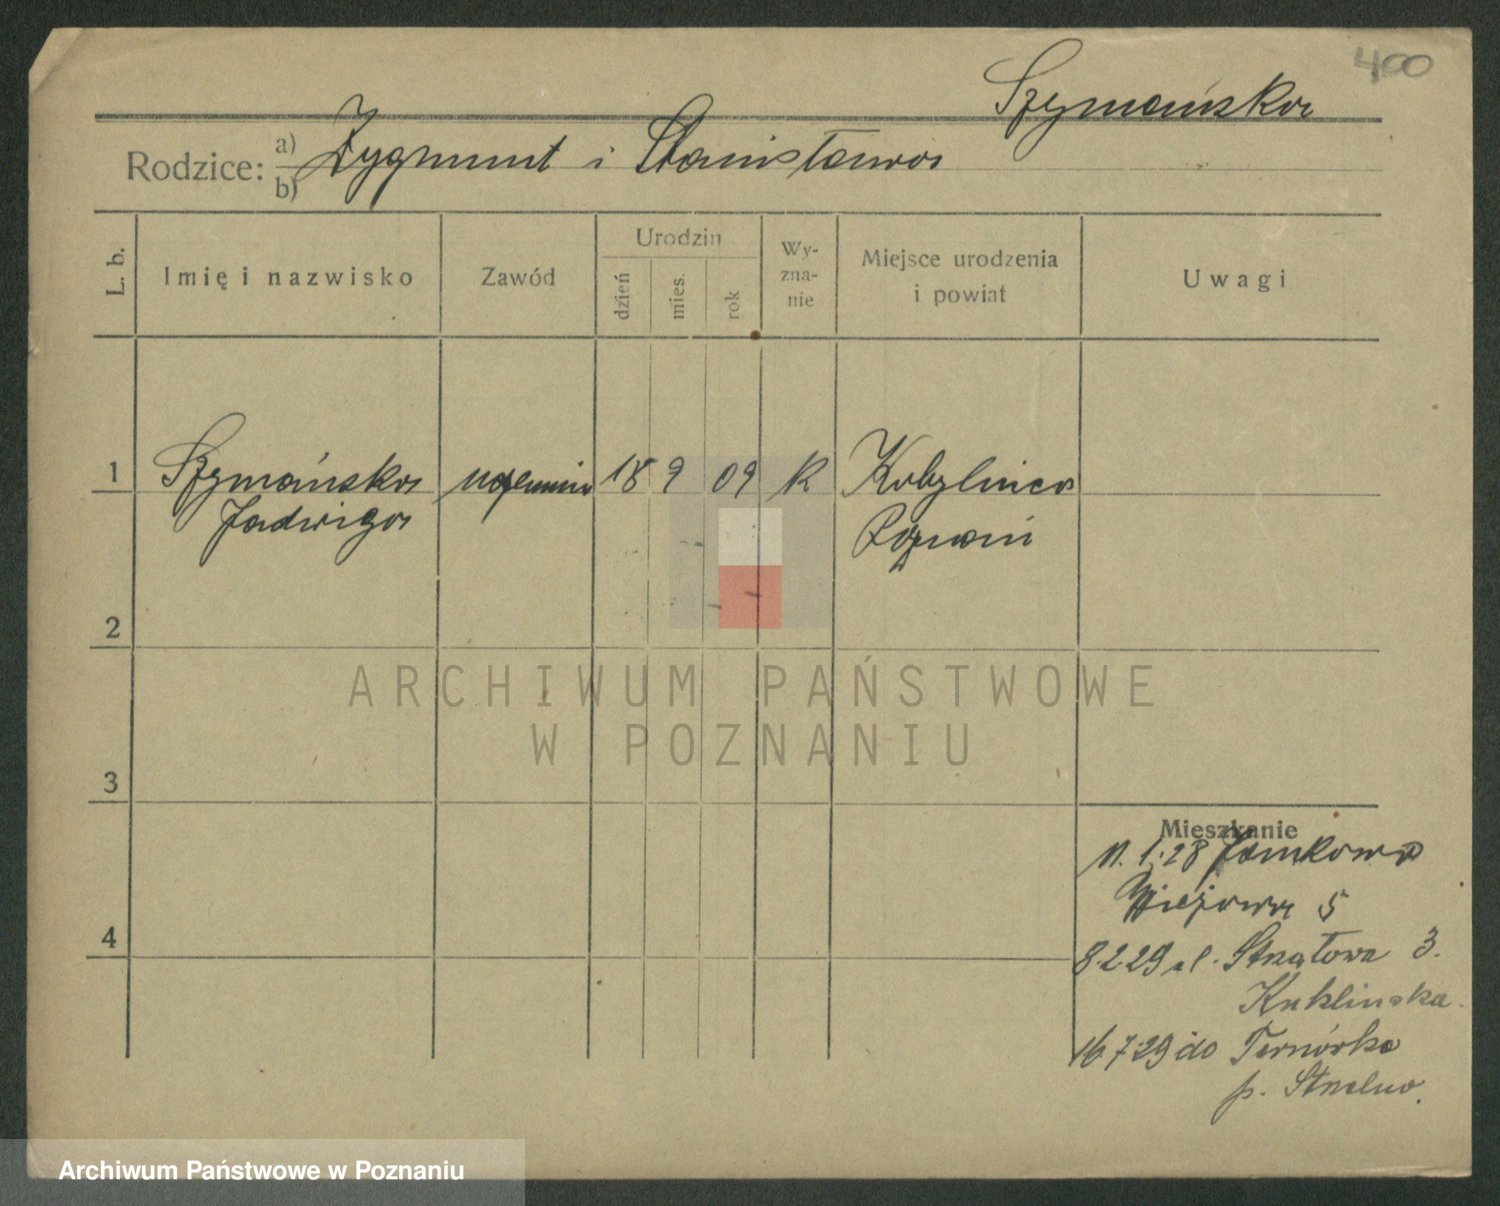 400
Szymańska
Rodzice: a) b) Zygmunt i Stanisława
L. b.
Imię i nazwisko
Zawód
Urodzin
dzień
mies.
rok
Wy-
zna-
nie
Miejsce urodzenia
i powiat
Uwagi
1 Szymańska 18 9 09 k Kobylnica
Jadwiga Poznań
2
3
4
Mieszkanie
11.1.28
5
8.2.29 ul. Strzałowa 3.
Kuklińska
16.7.29 do Ternórka
p. Strzelno.
ARCHIWUM PAŃSTWOWE
W POZNANIU
Archiwum Państwowe w Poznaniu